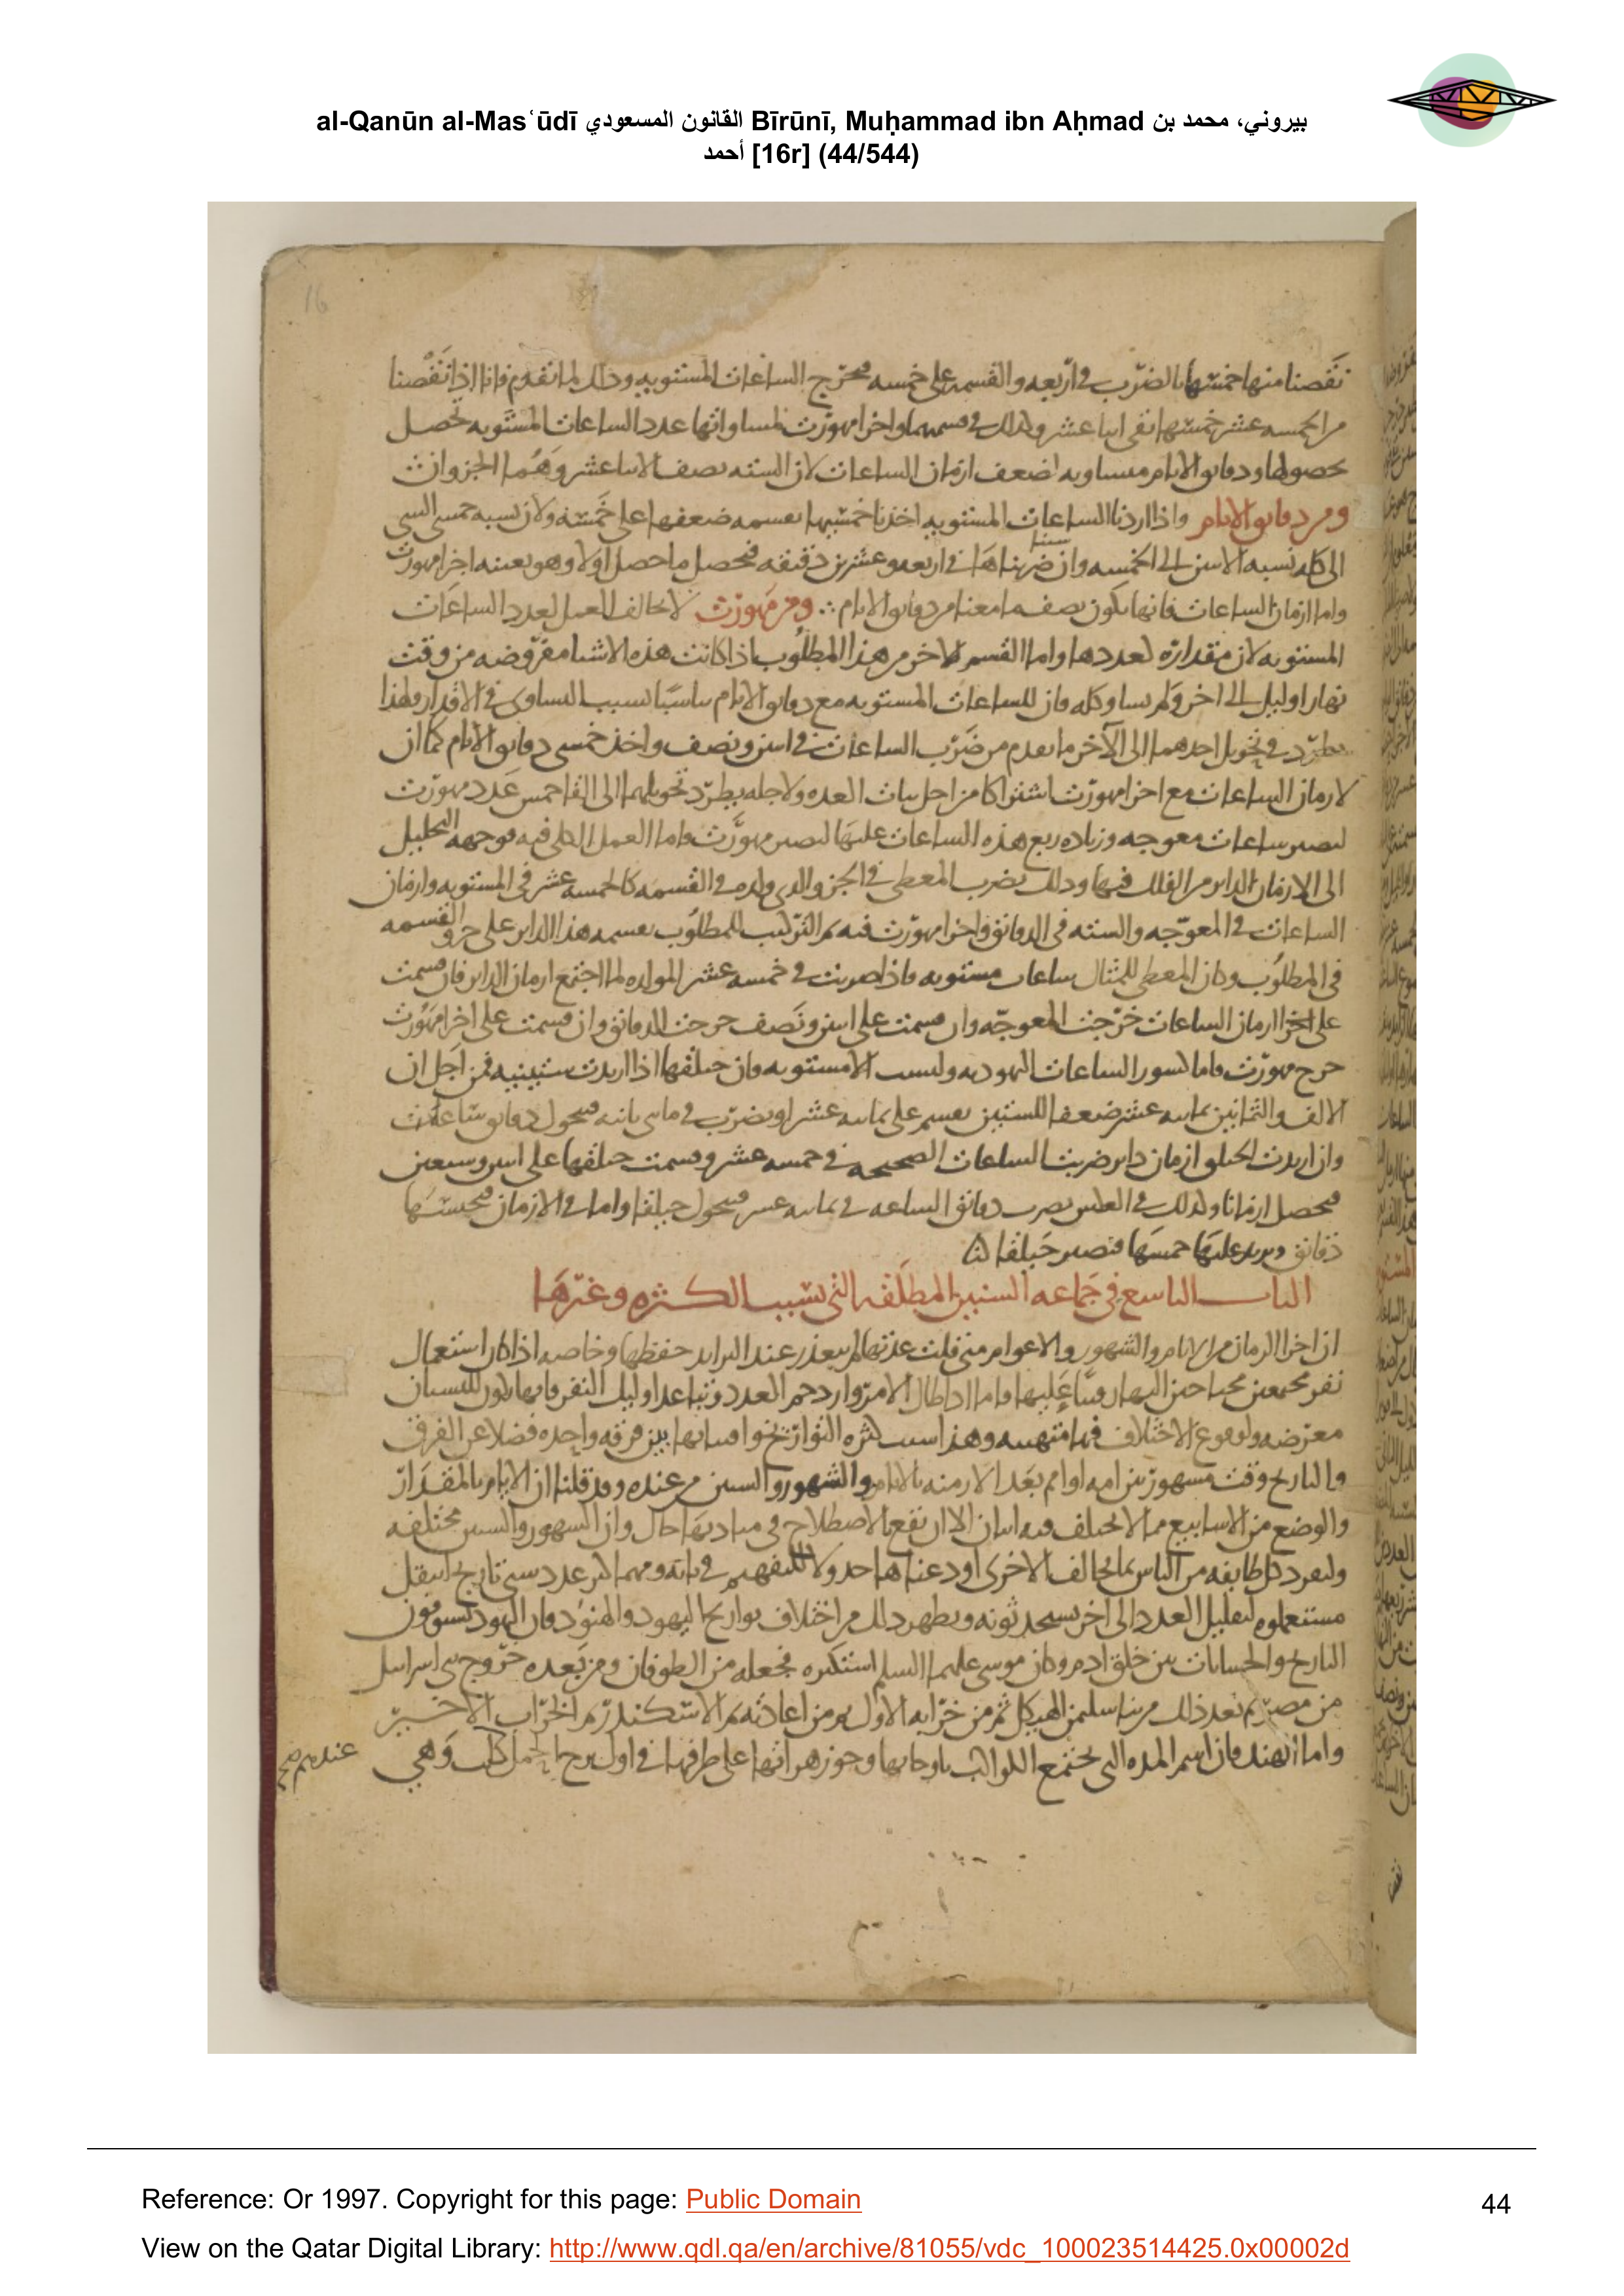 al-Qanūn al-Masʿūdī القانون المسعودي Bīrūnī, Muḥammad ibn Aḥmad بيروني، محمد بن
أحمد [16r] (44/544)
16
نقصنا منها خمسها بالضرب في اربعه والقسمه على خمسه فتخرج الساعات المستويه وذلك لما تقدم فانا اذا نقصنا
من الخمسه عشر خمسها بقى اثنا عشر وكذلك في قسمهما واجزا مهورت لمساواتها عدد الساعات المستويه تحصل
بحصولها ودقايق الايام مساويه لضعف ازمان الساعات لان السته نصف الاثنا عشر وهما الجزوان
ومن دقايق الايام واذا اردنا الساعات المستويه اخذنا خمسيها بقسمه ضعفها على خمسه ولان نسبه خمسي الشي
الى كله نسبه الاثنين الى الخمسه وان ضربناها في اربعه وعشرين دقيقه فيحصل ما حصل اولا وهو بعينه اجزا مهورت
واما ازمان الساعات فانها تكون نصف ما معنا من دقايق الايام ∴ ومن مهورت لا يخالف العمل لعدد الساعات
المستويه لان مقداره لعددها واما القسم الاخر من هذا المطلوب اذا كانت هذه الاشيا مفروضه من وقت
نهار او ليل الى اخر ولم يساو كله فان للساعات المستويه مع دقايق الايام تناسبا بسبب التساوى في الاقدار ولهذا
يطرد في تحويل احدهما الى الآخر ما تقدم من ضرب الساعات في اثنين ونصف واخذ خمسى دقايق الايام كما ان
لازمان الساعات مع اجزا مهورت اشتراكا من اجل ثبات العده ولاجله يطرد تحويلهما الى القا خمس عدد مهورت
لتصير ساعات معوجه وزياده ربع هذه الساعات عليها لتصير مهورت واما العمل الكلى فيه فوجهه التحليل
الى الازمان الداير من الفلك فيها وذلك بضرب المعطى في الجزو الذي ولده في القسمه كالخمسه عشر في المستويه وازمان
الساعات في المعوجه والسته في الدقائق واجزا مهورت فيه ثم التركيب للمطلوب بقسمه هذا الداير على جزو القسمه
في المطلوب وكان المعطى للمثال ساعات مستويه فاذا ضربت في خمسه عشر المولده لها اجتمع ازمان الداير فان قسمت
على اجزا ازمان الساعات خرجت المعوجه وان قسمت على اثنين ونصف خرجت الدقائق وان قسمت على اجزا مهورت
خرج مهورت فاما كسور الساعات اليهوديه وليست الا مستويه فان حيلقها اذا اريدت ستينيه فمن اجل ان
الالف والثمانين ثمانيه عشر ضعفا للستين يقسم على ثمانيه عشر او يضرب في مايتى ثانيه فيتحول دقايق ساعات
وان اريدت الحيلق ازمان داير ضربت الساعات الصحيحه في خمسه عشر وقسمت حيلقها على اثنين وسبعين
فيحصل ازمانا وكذلك في العكس يضرب دقائق الساعه في ثمانيه عشر فيتحول حيلقا واما في الازمان
دقائق ويزيد عليها خمسها فتصير حيلقا
الباب التاسع في جماعه السنين المطلقه التي بسبب الكثره وغيرها
ان اجزا الزمان من الايام والشهور والاعوام متى قلت عدتها لم يتعذر عند التزايد حفظها وخاصه اذا كان استعمال
نفر مجتمعين محتاجين اليها روما عليها واما اذا طال الامر وازدحم العدد وتباعد اوليك النفر فانها تكون للنسيان
معرضه ولوقوع الاختلاف فيها متهيئه وهذا سبب كثره التواريخ وافتنانها بين فرقه واحده فضلا عن الفرق
والتاريخ وقت مشهور بين امه او امم بعد الازمنه بالايام والشهور والسنين من عنده وقد قلنا ان الايام بالمقدار
والوضع من الاسابيع مما لا يختلف فيه اثنان الا ان يقع الاصطلاح في مباديها حال وان الشهور والسنين مختلفه
ولتفرد كل طايفه من الناس بما يخالف الاخرى اودعناها جدولا للتفهيم في بابه ومهما كثر عدد سنى تاريخ انتقل
مستعملوه لتقليل العدد الى اخر يستحدثونه ويظهر ذلك من اختلاف تواريخ اليهود والهنود فان اليهود يسوقون
التاريخ والحسابات من خلق ادم وكان موسى عليهما السلم استكثره فجعله من الطوفان ومن بعده خروج بنى اسرايل
من مصر ثم بعد ذلك من بنا سليمن الهيكل ثم من خرابه الاول ثم من اعادته ثم الاسكندر ثم الخراب الاخير
واما الهند فان اسم المده التي يجتمع الكواكب باوجاتها وجوزهراتها على طرفيها في اول برج الحمل كلب وهي
عندهم
Reference: Or 1997. Copyright for this page: Public Domain
44
View on the Qatar Digital Library: http://www.qdl.qa/en/archive/81055/vdc_100023514425.0x00002d